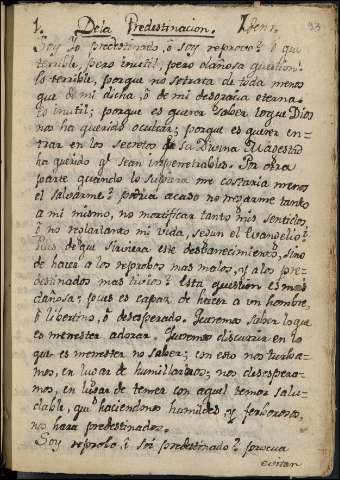 1. De la Predestinacion. Item 1. 93
Soy yo predestinado, ô soy reprovo? o què
terrible, pero inutil, pero dañosa question!
Es terrible, porque no se trata de tuda menos
que de mi dicha, ô de mi desgracia eterna.
es inutil; porque es querer saber lo que Dios
nos ha querido ocultar; porque es querer en-
trar en los secretos de su Divina Magestad
ha querido qe sean impenetrables. Por otra
parte quando lo supiera me costaria menos
el salvarme? podria acaso no negarme tanto
a mi mismo, no mortificar tanto mis sentidos
i no reglar tanto mi vida, segun el Evangelio?
Pues de que sirviera este desbanecimiento, sino
de hacer a los reprobos mas malos, y a los pre-
destinados mas tivios? Esta question es mas
dañosa; pues es capaz de hacer a un hombre,
ô libertino, ô desesperado. Queremos saber lo que
es menester adorar. Queremos discurrir en lo
que es menester no saber; con esto nos turba-
mos, en lugar de humillarnos; nos desespera-
mos, en lugar de temer con aquel temor salu-
dable, que haciendonos humildes y ferborosos,
nos hara predestinados.
Soy reprobo, i soi predestinado? procura
evitar